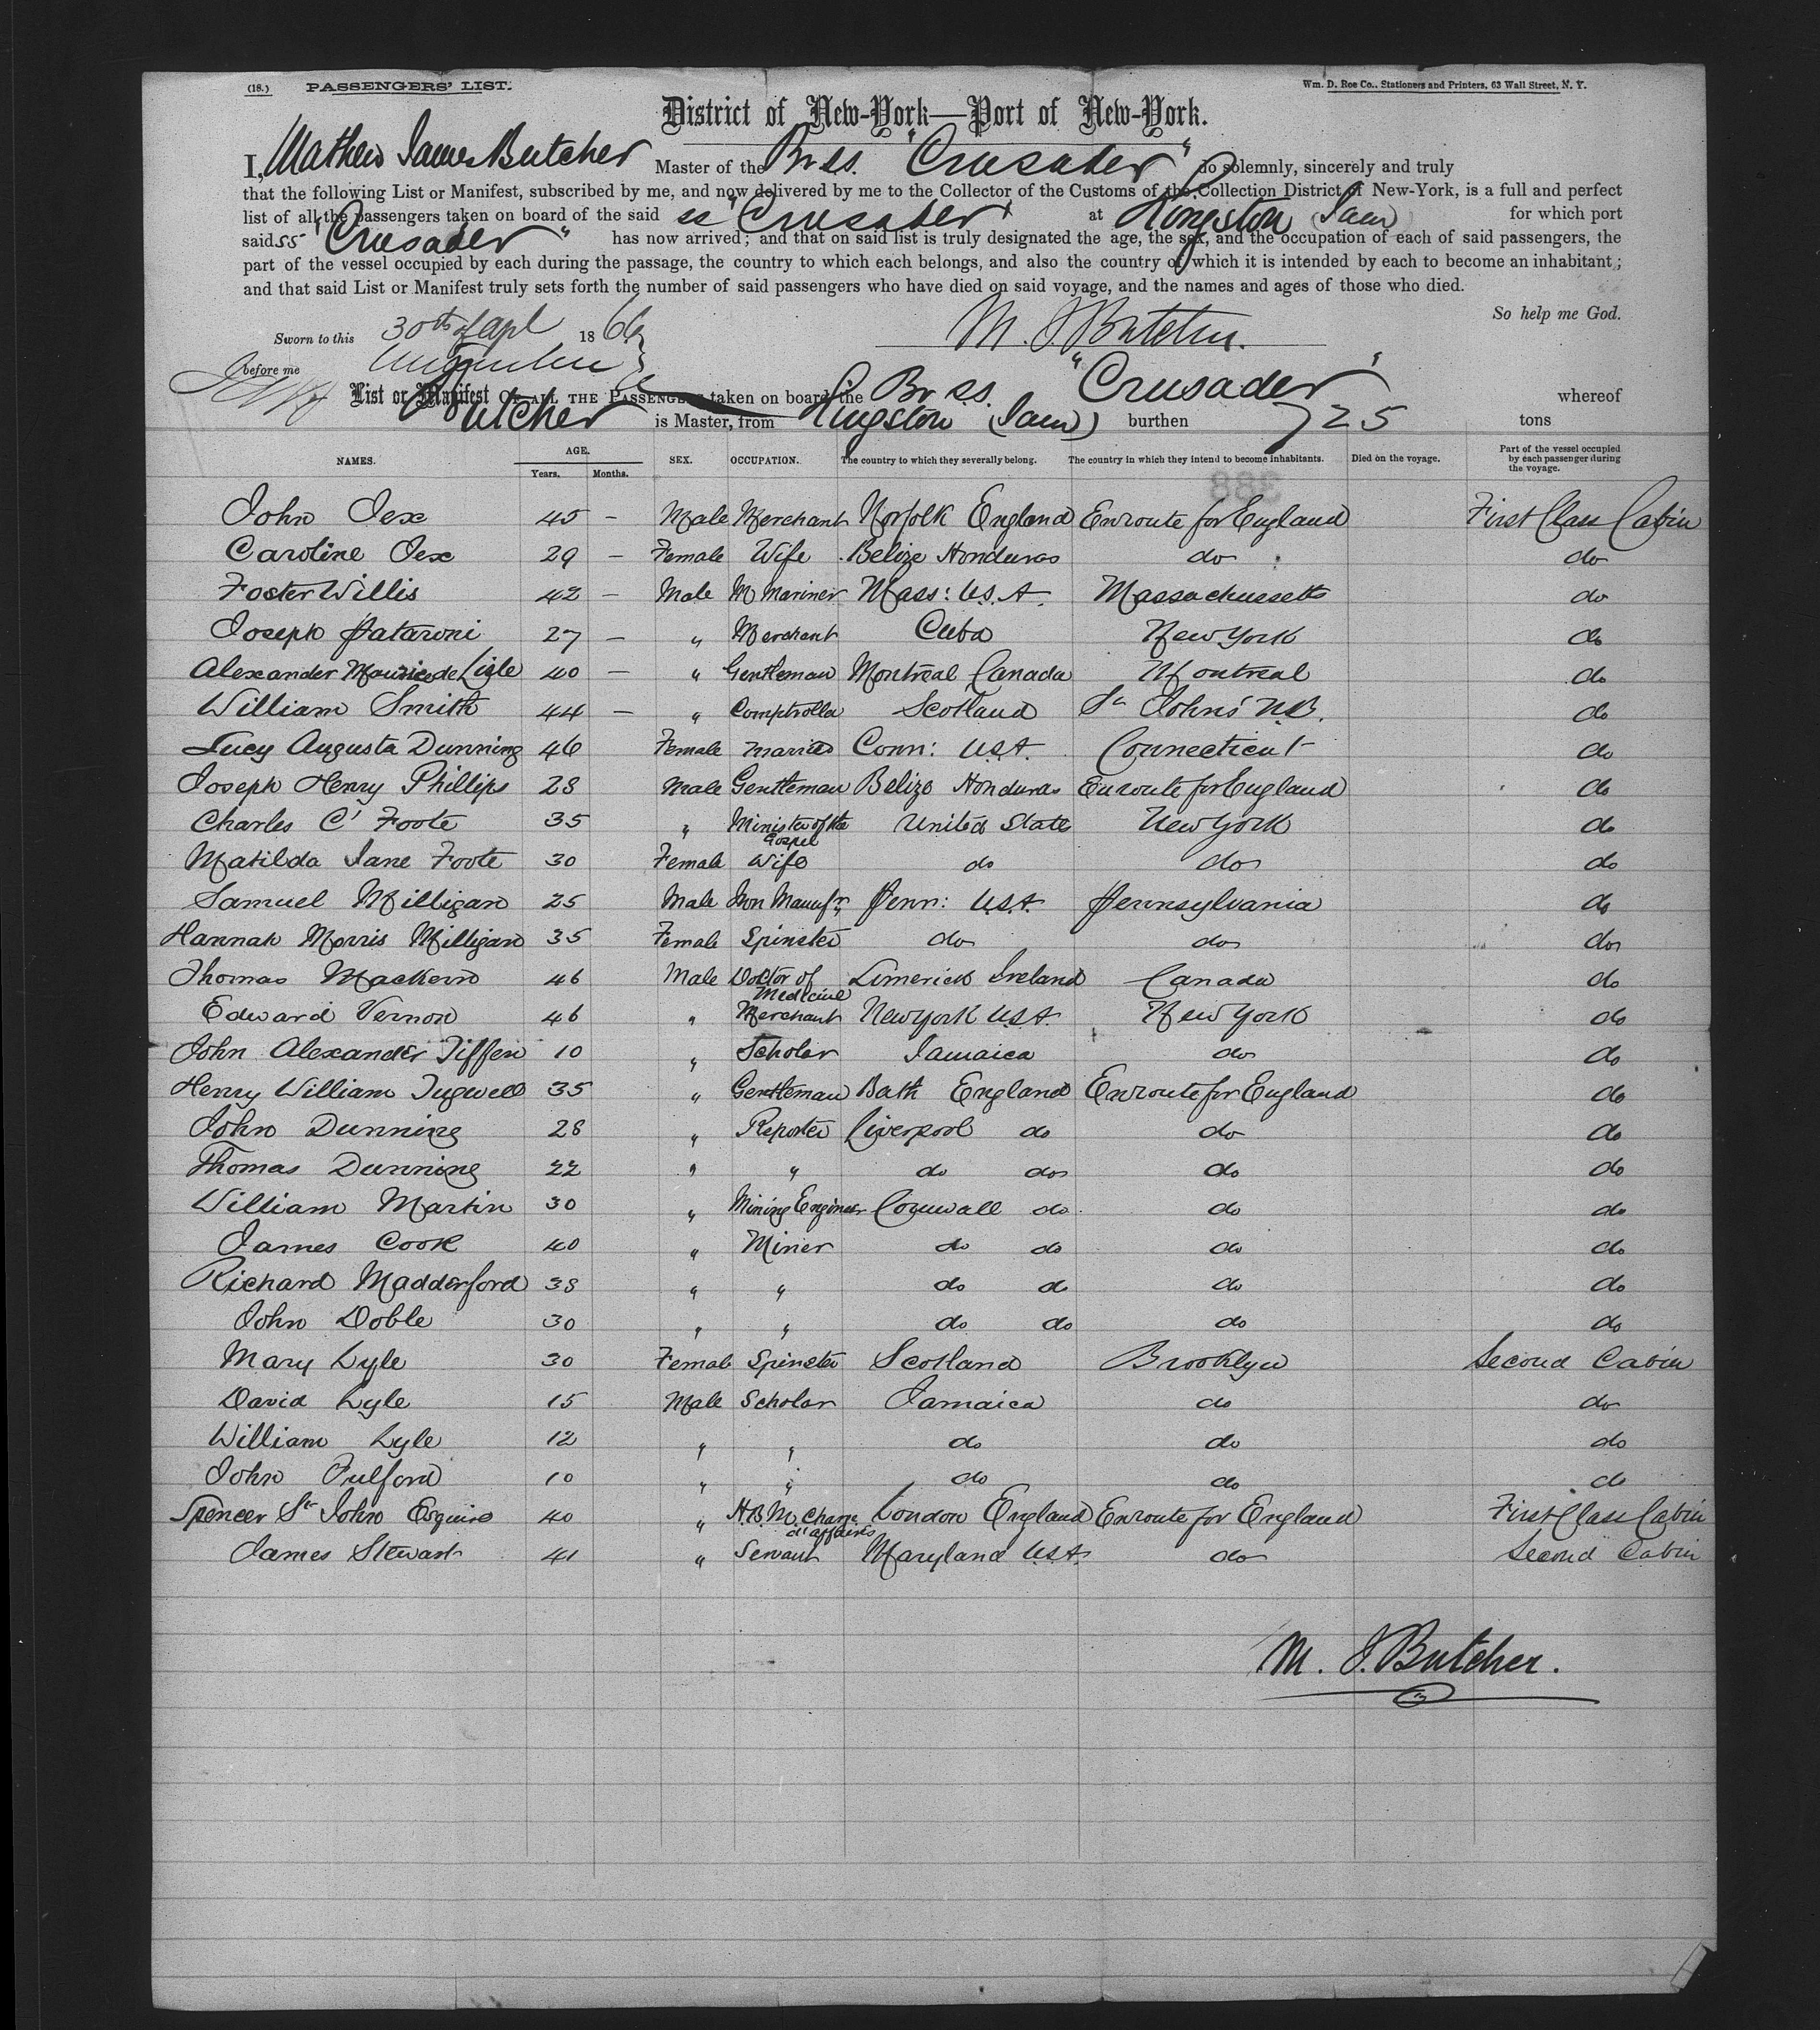 (18.) PASSENGERS' LIST. Wm. D. Roe Co., Stationers and Printers, 63 Wall Street, N. Y.
District of New-York—Port of New-York.
I, Mathew James Butcher Master of the Br ss. "Crusader" do solemnly, sincerely and truly
that the following List or Manifest, subscribed by me, and now delivered by me to the Collector of the Customs of the Collection District of New-York, is a full and perfect
list of all the passengers taken on board of the said ss "Crusader" at Kingston (Jam) for which port
said ss "Crusader" has now arrived; and that on said list is truly designated the age, the sex, and the occupation of each of said passengers, the
part of the vessel occupied by each during the passage, the country to which each belongs, and also the country of which it is intended by each to become an inhabitant;
and that said List or Manifest truly sets forth the number of said passengers who have died on said voyage, and the names and ages of those who died.
So help me God.
Sworn to this 30th of Apl 1866 M. J. Butcher.
before me
List or Manifest OF ALL THE PASSENGERS taken on board the Br ss. "Crusader" whereof
Butcher is Master, from Kingston (Jam) burthen 725 tons
NAMES. AGE. Years. Months. SEX. OCCUPATION. The country to which they severally belong. The country in which they intend to become inhabitants. Died on the voyage. Part of the vessel occupied by each passenger during the voyage.
388
John Jex 45 – Male Merchant Norfolk England Enroute for England First Class Cabin
Caroline Jex 29 – Female Wife Belize Honduras do do
Foster Willis 42 – Male M Mariner Mass: U.S.A. Massachussetts do
Joseph 27 – " Merchant Cuba New York do
Alexander Maurice de Lisle 40 – " Gentleman Montreal Canada Montreal do
William Smith 44 – " Comptroller Scotland St Johns' N.B. do
Lucy Augusta Dunning 46 Female Married Conn: U.S.A. Connecticut do
Joseph Henry Phillips 28 Male Gentleman Belize Honduras Enroute for England do
Charles C' Foote 35 " Minister of the Gospel United States New York do
Matilda Jane Foote 30 Female Wife do do do
Samuel Milligan 25 Male Iron Manufr Penn: U.S.A. Pennsylvania do
Hannah Morris Milligan 35 Female Spinster do do do
Thomas Mackern 46 Male Doctor of Medicine Limerick Ireland Canada do
Edward Vernon 46 " Merchant New York U.S.A. New York do
John Alexander Tiffen 10 " Scholar Jamaica do do
Henry William Tugwell 35 " Gentleman Bath England Enroute for England do
John Dunning 28 " Reporter Liverpool do do do
Thomas Dunning 22 " " do do do do
William Martin 30 " Mining Engineer Cornwall do do do
James Cook 40 " Miner do do do do
Richard Madderford 38 " " do do do do
John Doble 30 " " do do do do
Mary Lyle 30 Female Spinster Scotland Brooklyn Second Cabin
David Lyle 15 Male Scholar Jamaica do do
William Lyle 12 " " do do do
John Fulford 10 " " do do do
Spencer St John Esquire 40 " H.B.M. Charge d'affaires London England Enroute for England First Class Cabin
James Stewart 41 " Servant Maryland U.S.A. do Second Cabin
M. J. Butcher.